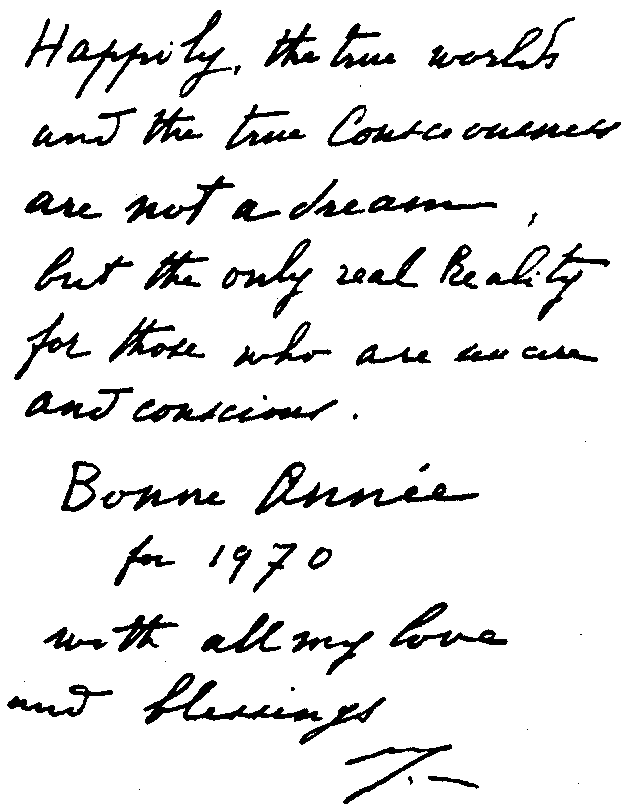 Happily, the true worlds
and the true Consciousness
are not a dream,
but the only real Reality
for those who are
and conscious.
Bonne Année
for 1970
with all my love
and blessings